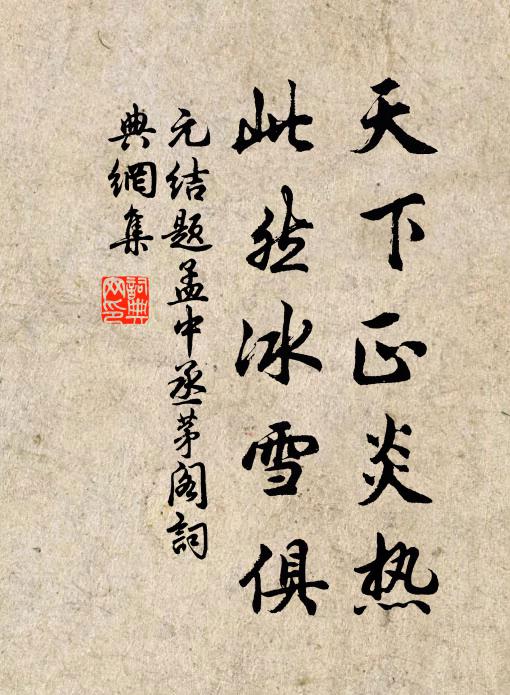 天下正炎热
此然冰雪俱
元结题孟中丞茅阁词
典網集
詞典網印